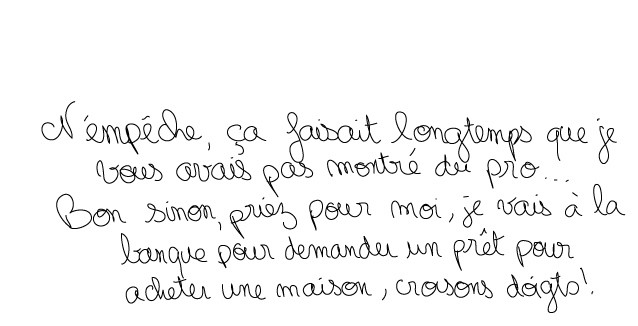 N'empêche, ça faisait longtemps que je
vous avais pas montré du pro...
Bon sinon, priez pour moi, je vais à la
banque pour demander un prêt pour
acheter une maison, croisons doigts!